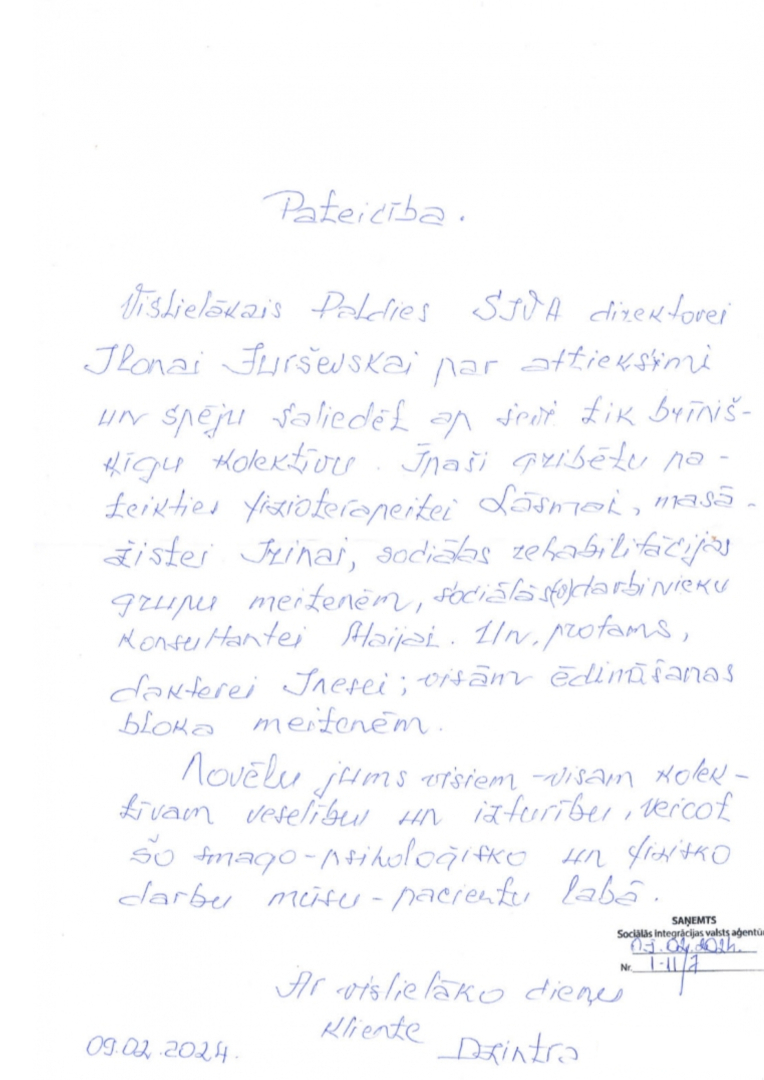 Pateicība.
Vislielākais Paldies SIVA direktorei
Ilonai Jurševskai par attieksmi
un spēju saliedēt ap sevi tik brīniš-
ķīgu kolektīvu. Īpaši gribētu pa-
teikties fizioterapeitei Lāsmai, masā-
žistei Irinai, sociālās rehabilitācijas
grupu meitenēm, sociālās(o)darbinieku
konsultantei Maijai. Un, protams,
dakterei Inesei; visām ēdināšanas
bloka meitenēm.
Novēlu jums visiem - visam kolek-
tīvam veselību un izturību, veicot
šo smago-psiholoģisko un fizisko
darbu mūsu - pacientu labā.
SAŅEMTS
Sociālās integrācijas valsts aģentūr
02.2024.
Nr. 1-11/7
Ar vislielāko cieņu
Kliente
09.02.2024. Dzintra